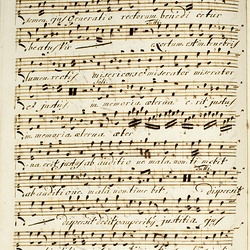 semen ejus Generatio rectorum benedi cetur
beatus vir exortum est in tenebris
lumen rectis misericors et miserator miserator
et justus in memoria aeterna e rit justus
in memoria aeterna aeter
na erit justus ab auditio ne mala non ti mebit
ab auditione mala non time bit. dispersit
dispersit dedit pauperibus justitia ejus